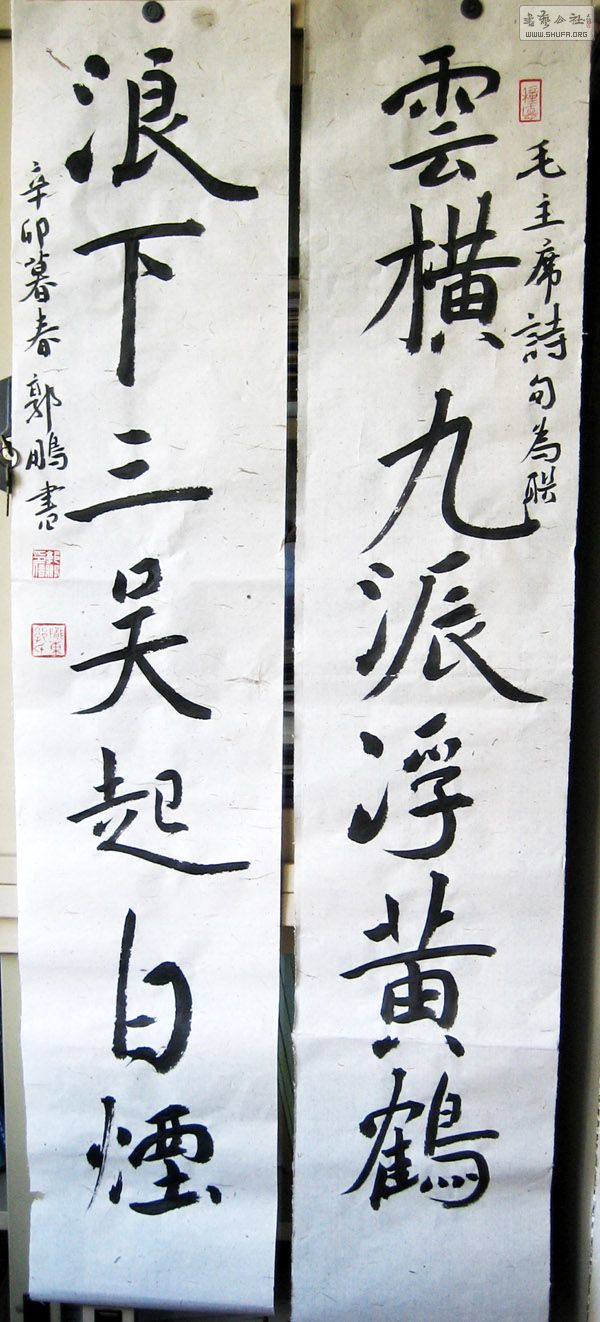 毛主席詩句為联
雲横九派浮黄鶴
浪下三吴起白煙
辛卯暮春郭鵬書
書藝公社
WWW.SHUFA.ORG